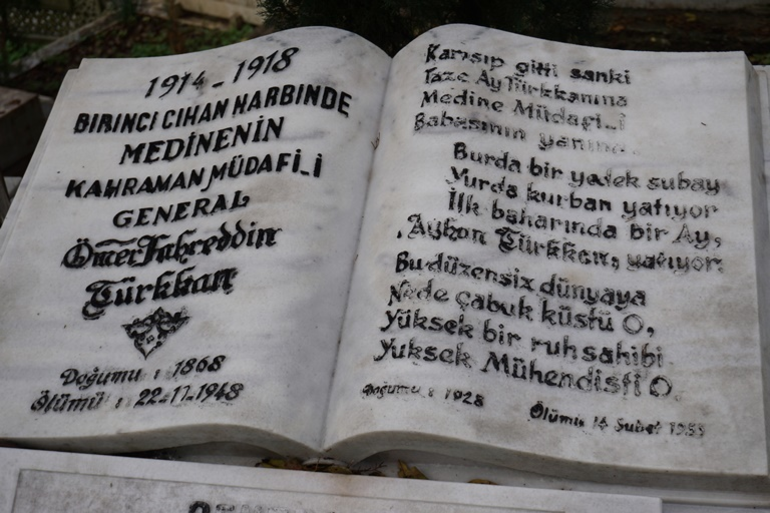 1914 - 1918
BIRINCI CIHAN HARBINDE
MEDİNENİN
KAHRAMAN MÜDAFİ-İ
GENERAL
Ömer Fahreddin
Türkkan
Doğumu : 1868
Ölümü : 22-11-1948
Karışıp gitti sanki
Taze Ay Türkkanına
Medine Müdafi-i
Babasının yanına.
Burda bir yedek subay
Yurda kurban yatıyor
İlk baharında bir Ay,
Ayhan Türkkan, yatıyor.
Bu düzensiz dünyaya
Nede çabuk küstü O,
Yüksek bir ruh sahibi
Yuksek Mühendisti O.
Doğumu : 1928
Ölümü 14 Şubat